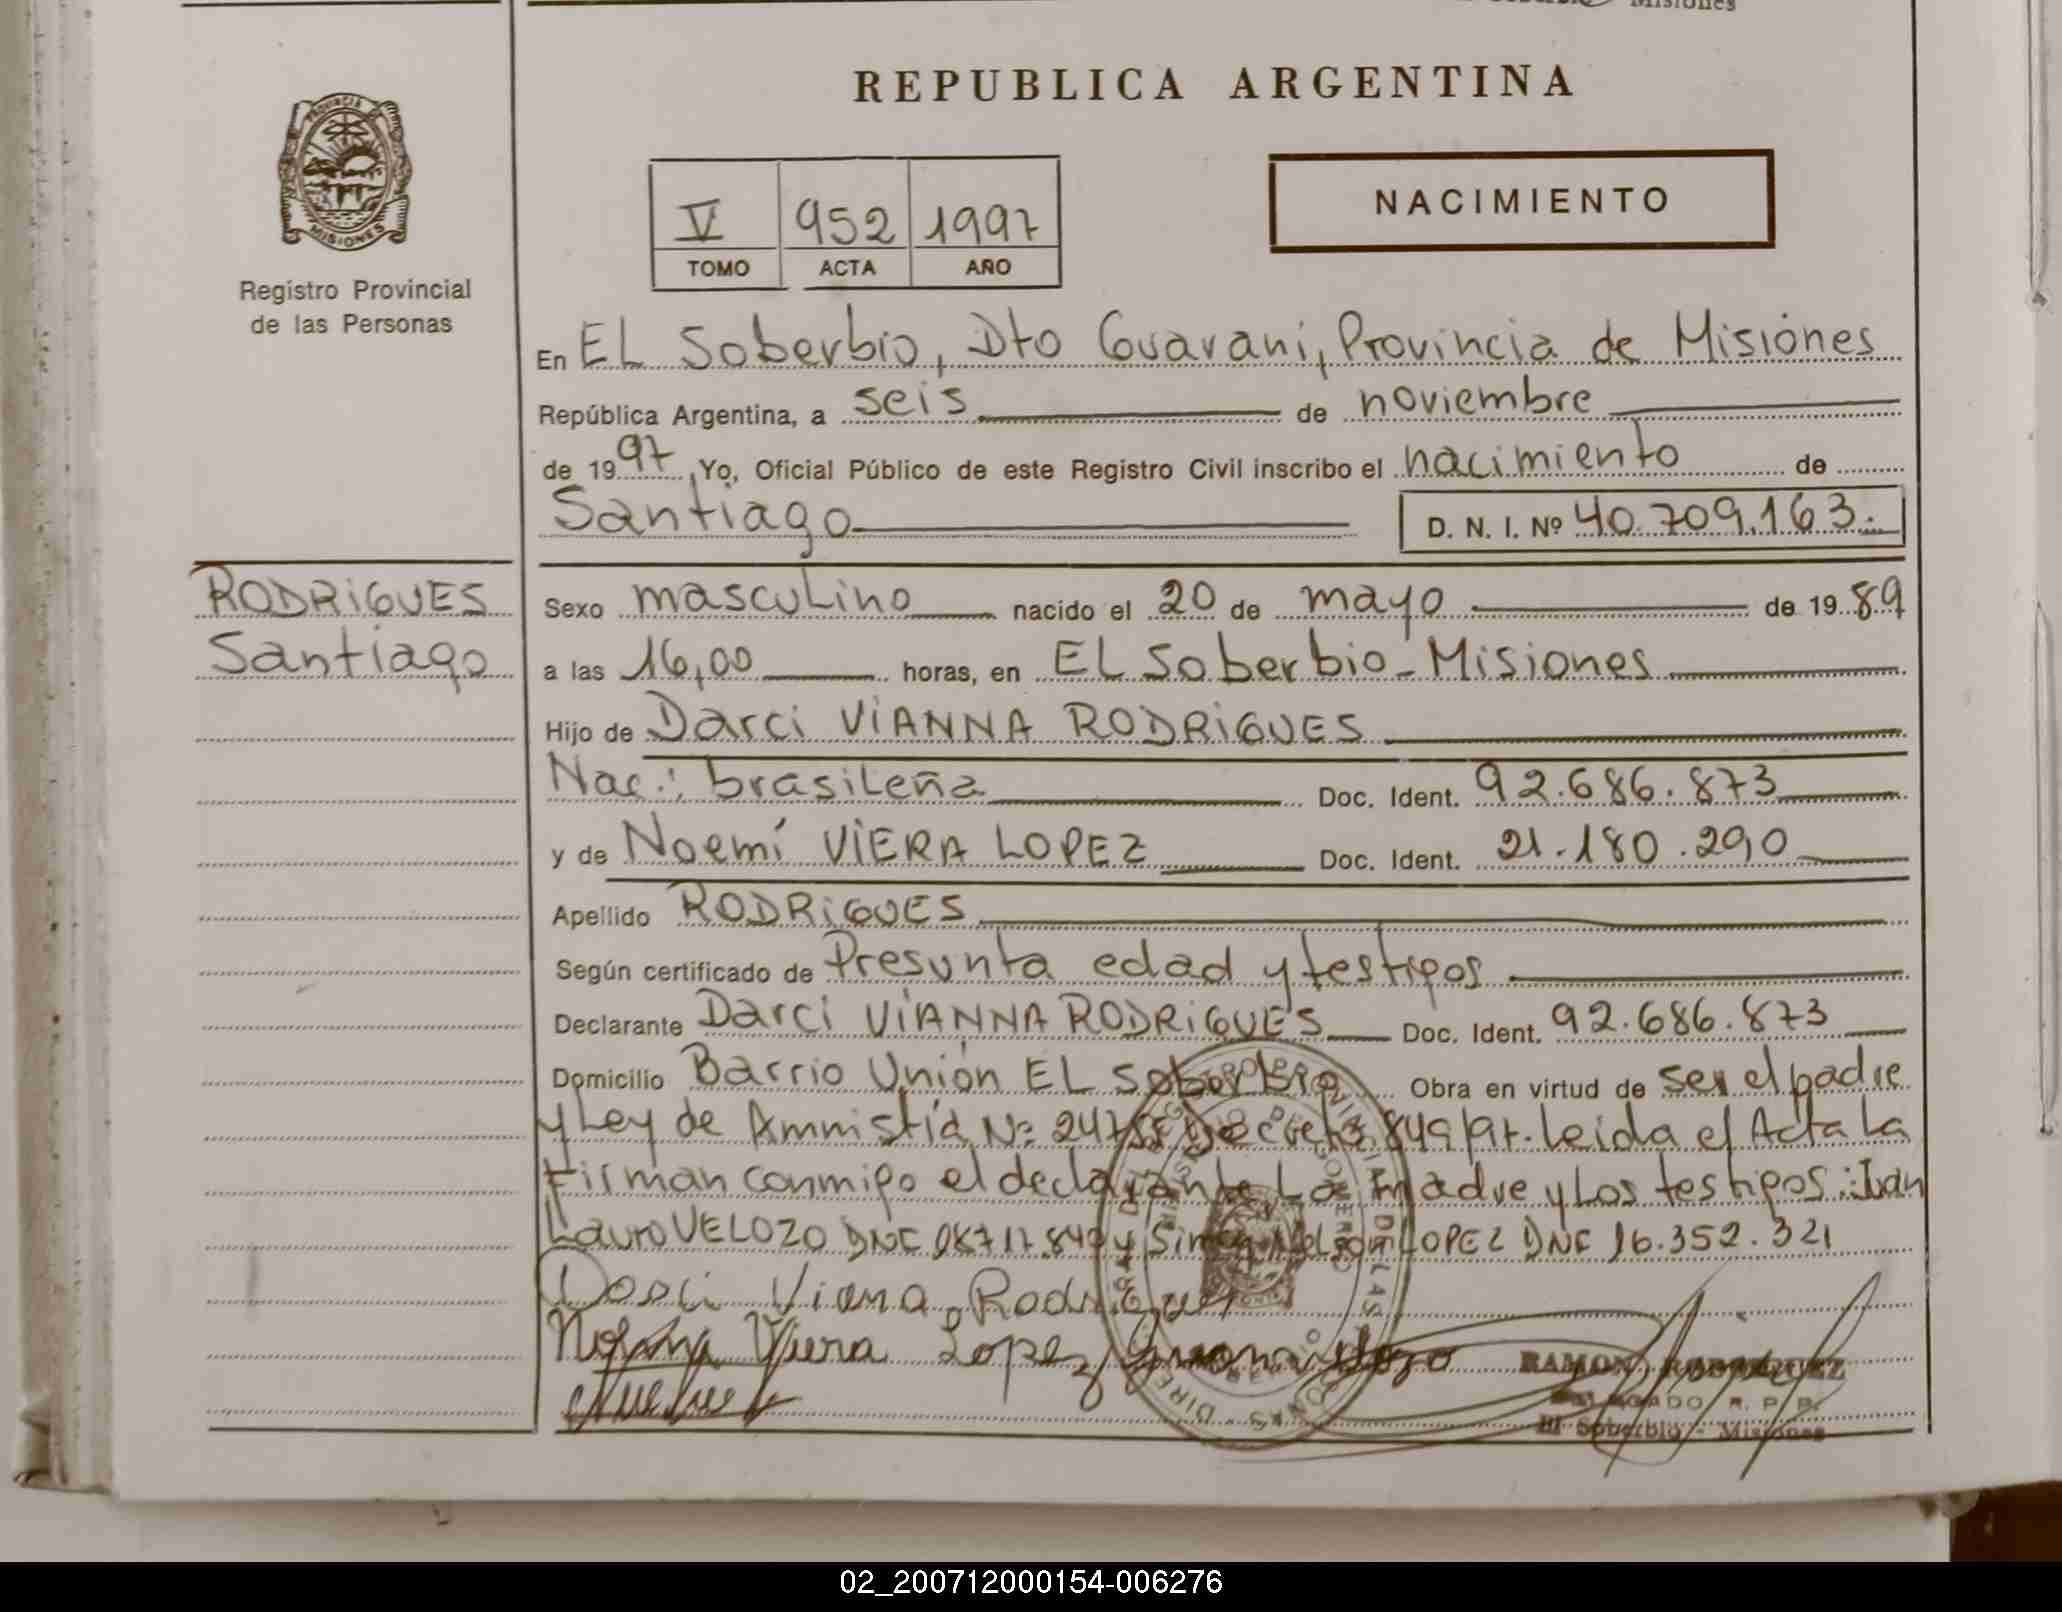 Misiones
REPUBLICA ARGENTINA
PROVINCIA
MISIONES
Registro Provincial
de las Personas
V 952 1997
TOMO ACTA AÑO
NACIMIENTO
En EL Soberbio, Dto Guaraní, Provincia de Misiones
República Argentina, a seis de noviembre
de 1997, Yo, Oficial Público de este Registro Civil inscribo el nacimiento de
Santiago D. N. I. Nº 40.709.163.
RODRIGUES
Santiago
Sexo masculino nacido el 20 de mayo de 1989
a las 16,00 horas, en EL Soberbio - Misiones
Hijo de Darci VIANNA RODRIGUES
Nac.: brasileña Doc. Ident. 92.686.873
y de Noemí VIERA LOPEZ Doc. Ident. 21.180.290
Apellido RODRIGUES
Según certificado de Presunta edad y testigos
Declarante Darci VIANNA RODRIGUES Doc. Ident. 92.686.873
Domicilio Barrio Unión EL Soberbio Obra en virtud de ser el padre
y Ley de Amnistía Nº Decreto leida el Acta La
Firman conmigo el declarante La madre y Los testigos: Juan
Lauro VELOZO y LOPEZ 16.352.321
Viana Rodrigues
Viera Lopez
RAMON RODRIGUEZ
R. P. P.
El Soberbio - Misiones
02_200712000154-006276